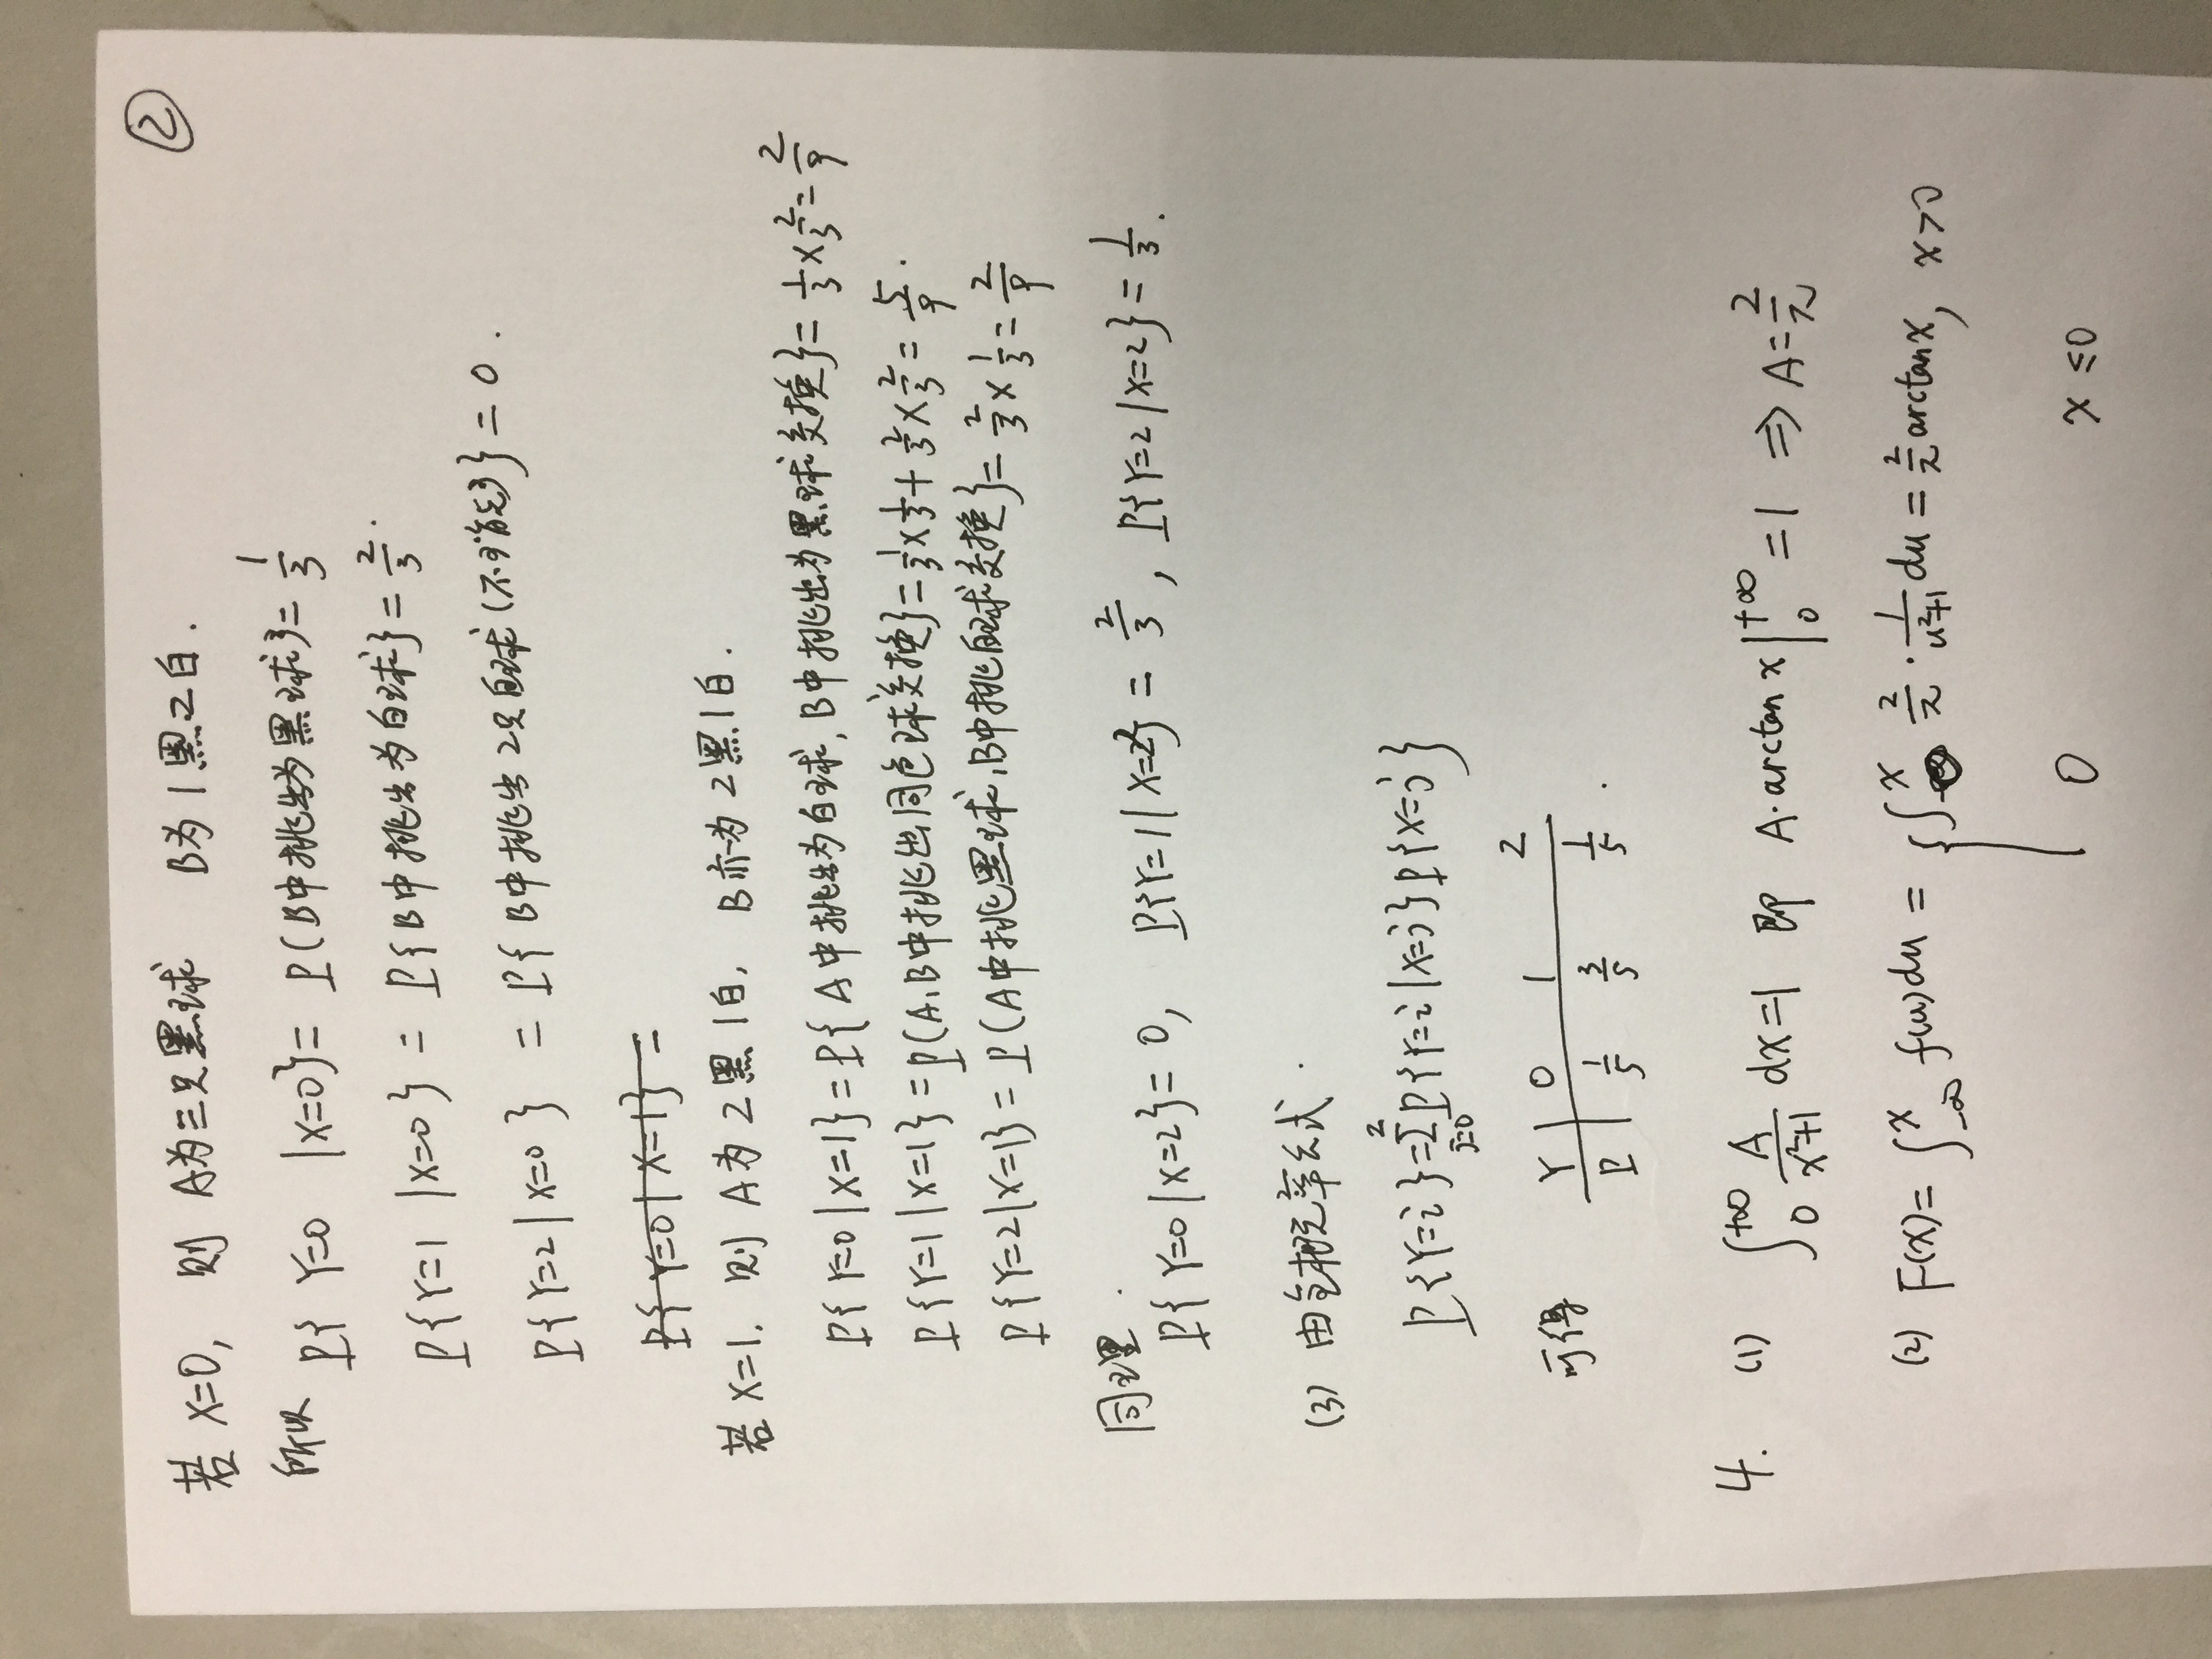 ②
若 X=0, 则 A为三只黑球 B为1黑2白.
所以 P{ Y=0 |X=0}= P(B中挑出为黑球}= 1/3
P{Y=1 |X=0} = P{B中挑出为白球}= 2/3.
P{Y=2|X=0} = P{B中挑出2只白球(不可能)} = 0.
P{Y=0|X=1} =
若X=1. 则 A为2黑1白, B亦为2黑1白.
P{Y=0|X=1}=P{A中挑出为白球, B中挑出为黑球交换}= 1/3×2/3=2/9
P{Y=1|X=1}=P(A,B中挑出同色球交换}=1/3×1/3+2/3×2/3=5/9.
P{Y=2|X=1}=P(A中挑黑球,B中挑白球交换}=2/3×1/3=2/9
同理.
P{Y=0|X=2}=0, P{Y=1|X=2}=2/3, P{Y=2|X=2}=1/3.
(3) 由全概率公式.
P{Y=i}=∑_{j=0}^{2}P{Y=i|X=j}P{X=j}
可得 Y | 0 1 2
P | 1/5 3/5 1/5.
4. (1) ∫_0^{+∞} A/(x²+1) dx=1 即 A·arctan x|_0^{+∞}=1 ⇒ A=2/π
(2) F(x)=∫_{-∞}^x f(u)du = { ∫_0^x 2/π·1/(u²+1)du=2/π arctanx, x>0
0 x≤0